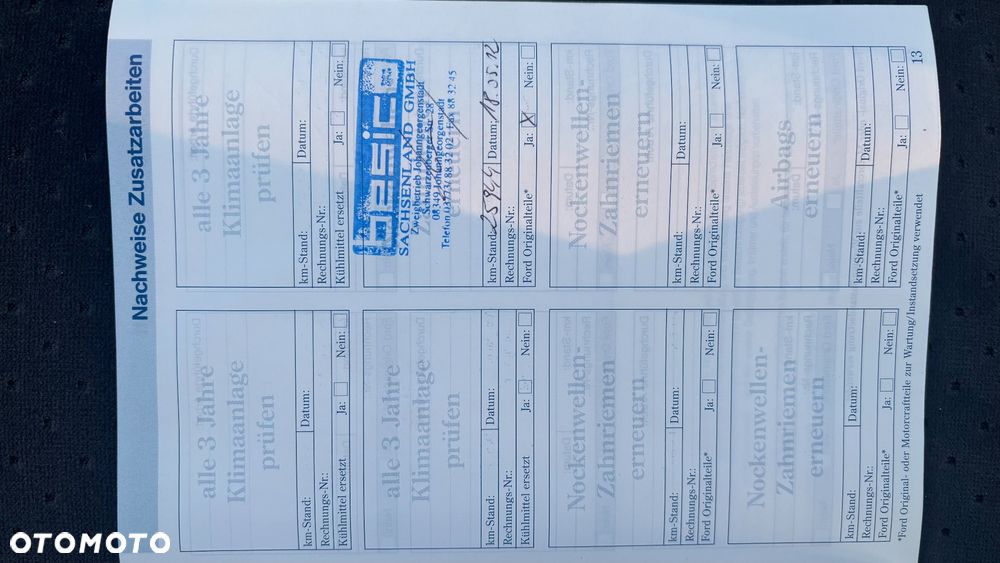 Nachweise Zusatzarbeiten
alle 3 Jahre
Klimaanlage
prüfen
km-Stand: Datum:
Rechnungs-Nr.:
Kühlmittel ersetzt Ja: Nein:
alle 3 Jahre
Klimaanlage
prüfen
km-Stand: Datum:
Rechnungs-Nr.:
Kühlmittel ersetzt Ja: Nein:
alle 3 Jahre
Klimaanlage
prüfen
km-Stand: Datum:
Rechnungs-Nr.:
Kühlmittel ersetzt Ja: Nein:
basic
SACHSENLAND GMBH
Zweigbetrieb Johanngeorgenstadt
Schwarzenberger Str. 28
08349 Johanngeorgenstadt
Telefon 03773/ 88 32 02 · Fax 88 32 45
km-Stand: 25944 Datum: 18.05.12
Rechnungs-Nr.:
Ford Originalteile* Ja: X Nein:
Nockenwellen-
Zahnriemen
erneuern
km-Stand: Datum:
Rechnungs-Nr.:
Ford Originalteile* Ja: Nein:
Nockenwellen-
Zahnriemen
erneuern
km-Stand: Datum:
Rechnungs-Nr.:
Ford Originalteile* Ja: Nein:
Nockenwellen-
Zahnriemen
erneuern
km-Stand: Datum:
Rechnungs-Nr.:
Ford Originalteile* Ja: Nein:
Airbags
erneuern
km-Stand: Datum:
Rechnungs-Nr.:
Ford Originalteile* Ja: Nein:
*Ford Original- oder Motorcraftteile zur Wartung/Instandsetzung verwendet
13
OTOMOTO